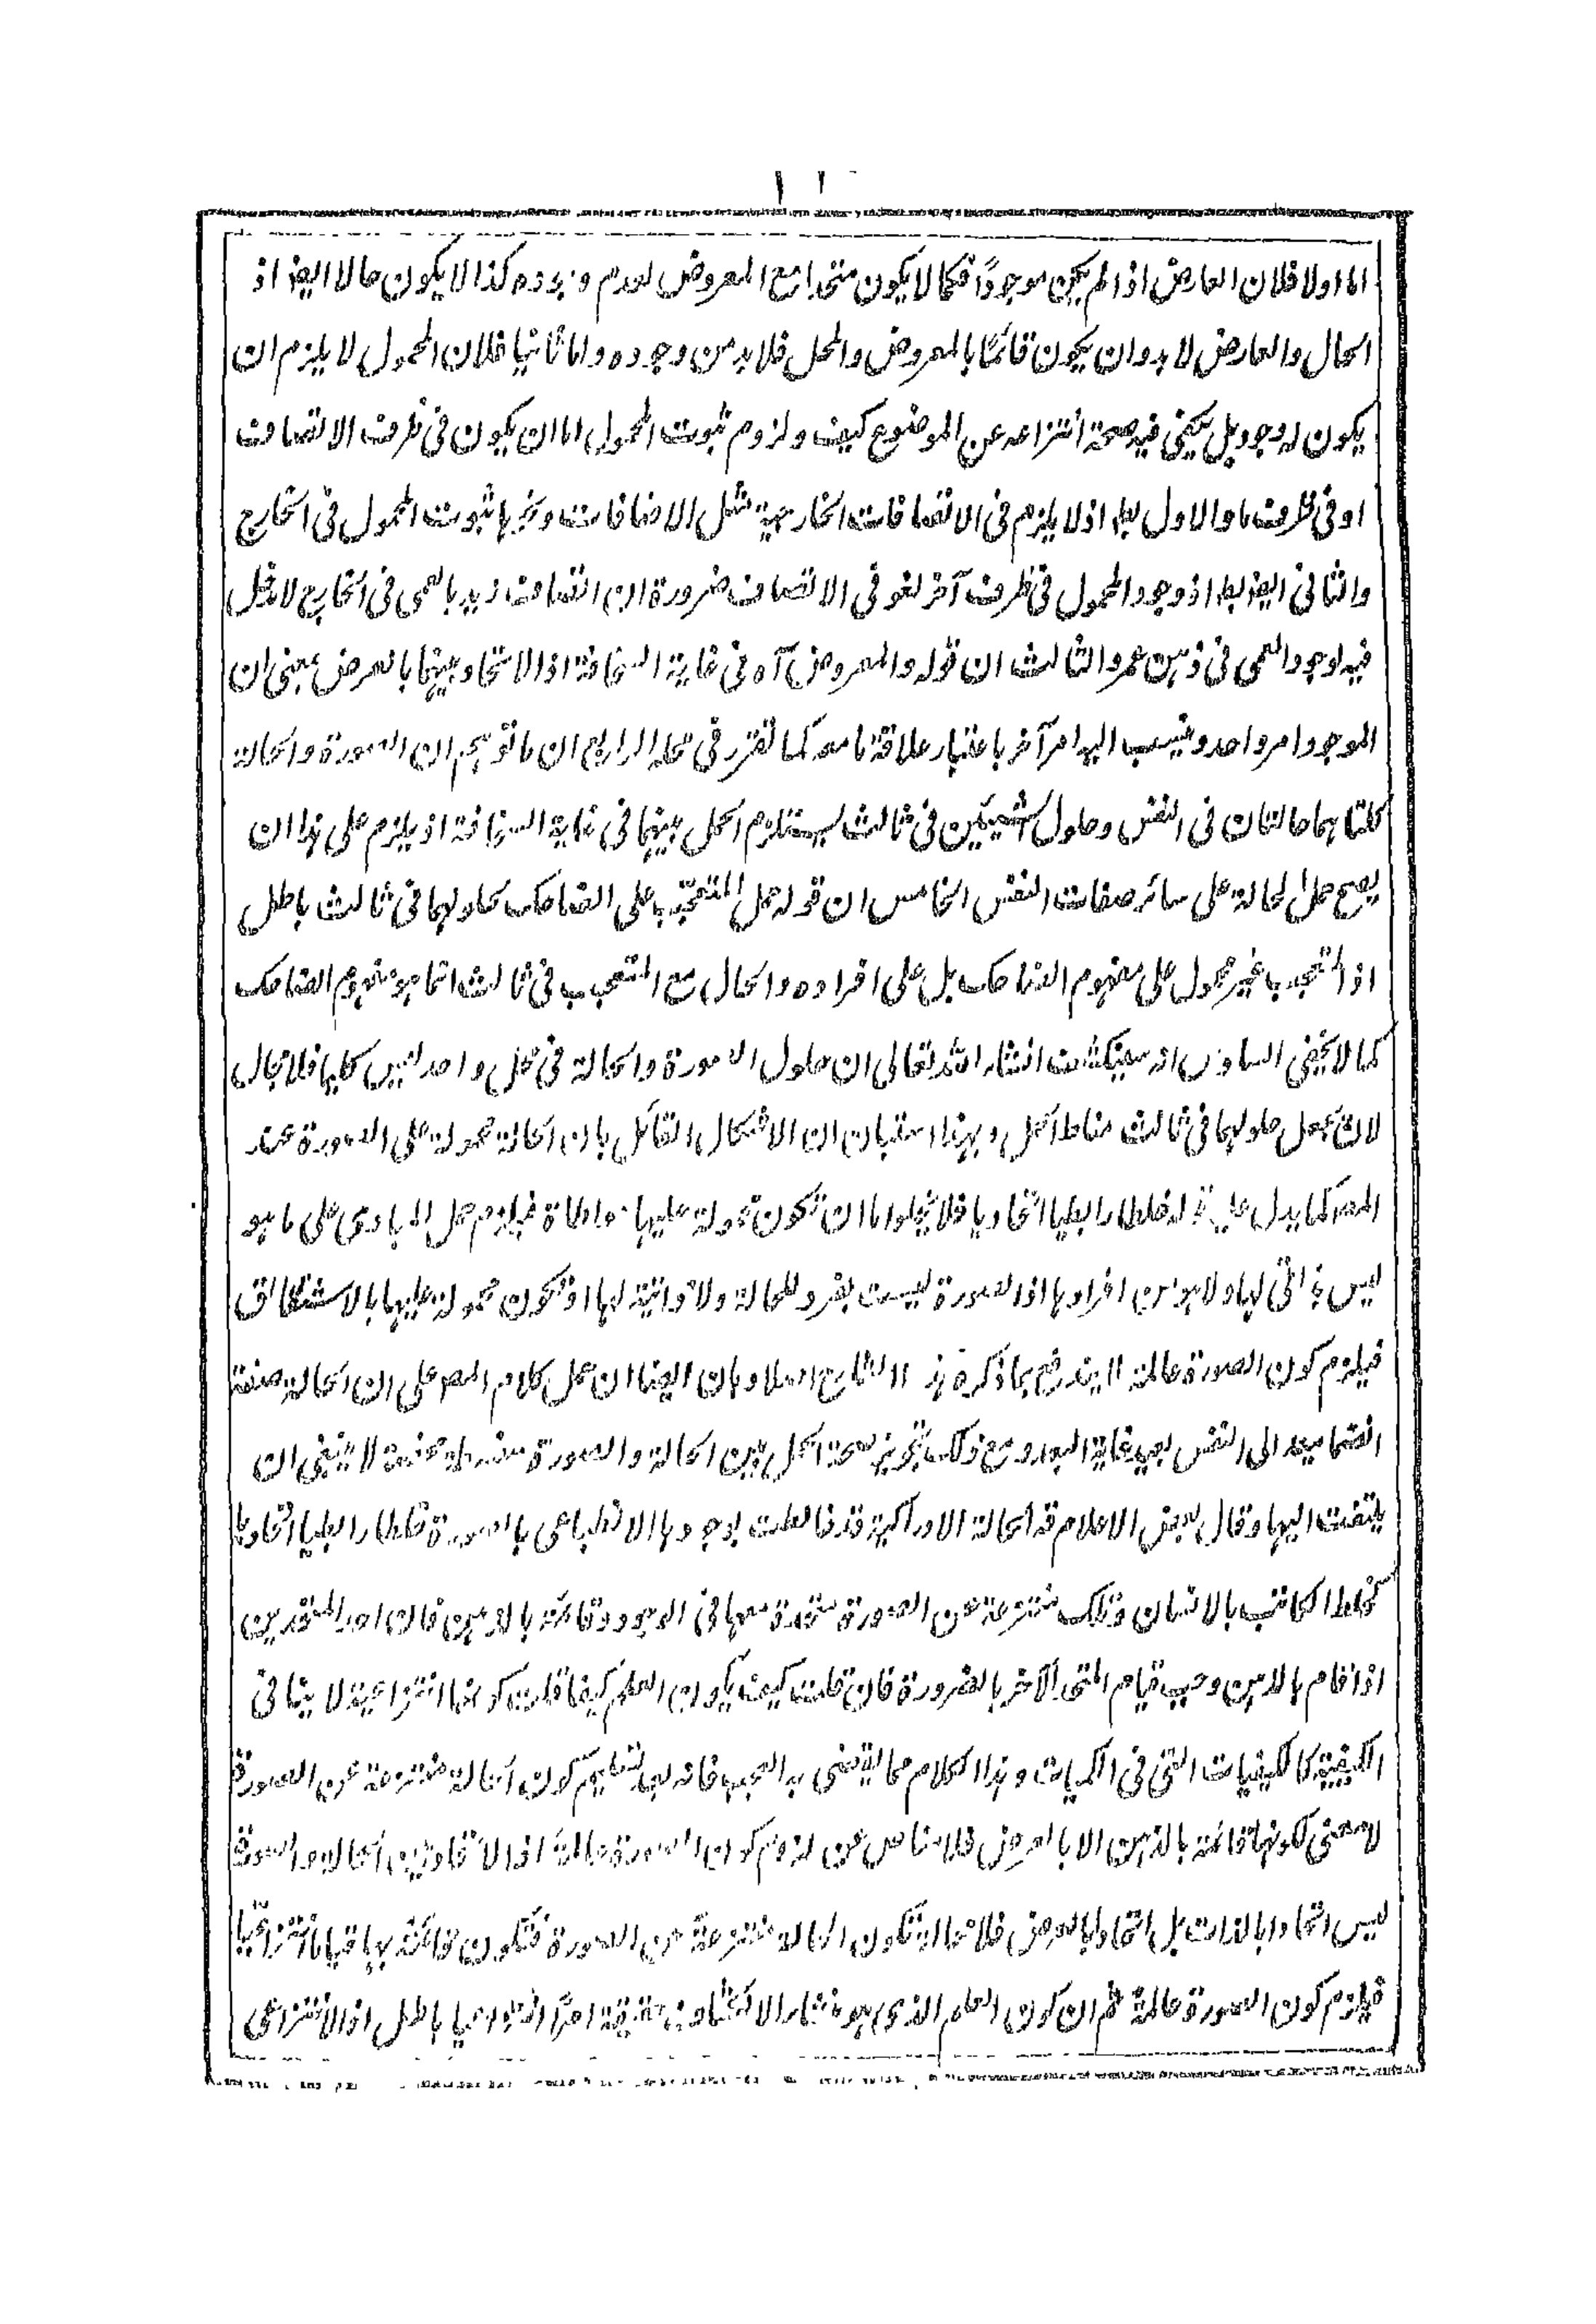 اما اولا فلان العارض اذا لم يكن موجودًا فكما لا يكون متحدا مع المعروض لعدم وجوده كذا لا يكون حالا ايضا اذ
الحال والعارض لا بد وان يكون قائمًا بالمعروض والمحل فلا بد من وجوده واما ثانيا فلان المحمول لا يلزم ان
يكون له وجود بل يكفى فيه صحة انتزاعه عن الموضوع كيف ولزوم ثبوت المحمول اما ان يكون فى ظرف الاتصاف
او فى ظرف ما والاول بط اذ لا يلزم فى الاتصافات الخارجية مثل الاضافات ونحوها ثبوت المحمول فى الخارج
والثانى ايضا بط اذ وجود المحمول فى ظرف آخر لغو فى الاتصاف ضرورة ان اتصاف زيد بالعمى فى الخارج لا دخل
فيه لوجود العمى فى ذهن عمرو الثالث ان قوله والمعروض آه فى غاية السخافة اذ الاتحاد بينهما بالعرض بمعنى ان
الموجود امر واحد وينسب اليه امر آخر باعتبار علاقة ما معه كما تقرر فى محله الرابع ان ما توهم ان الصورة والحالة
كلتاهما حالتان فى النفس وحلول الشيئين فى ثالث يستلزم الحمل بينهما فى غاية السخافة اذ يلزم على هذا ان
يصح حمل الحالة على سائر صفات النفس الخامس ان قوله حمل المتعجب على الضاحك بحلولهما فى ثالث باطل
اذ المتعجب غير محمول على مفهوم الضاحك بل على افراده والحال مع المتعجب فى ثالث انما هو مفهوم الضاحك
كما لا يخفى السادس انه سينكشف انشاء الله تعالى ان حلول الصورة والحالة فى محل واحد ليس كليها فلا مجال
لان يجعل حلولهما فى ثالث مناط الحمل وبهذا استبان ان الاشكال القائل بان الحالة محمولة على الصورة عند
المصر كما يدل عليه قوله خلطا رابطيا اتحاديا فلا يخلوا ما ان تكون محمولة عليها مواطاة فيلزم حمل المبادى على ما هو
ليس بذاتى لها ولا هو من افرادها اذ الصورة ليست بفرد للحالة ولا ذاتية لها او تكون محمولة عليها بالاشتقاق
فيلزم كون الصورة عالمة لا يندفع بما ذكره الشارح اصلا وبان ايضا ان حمل كلام المصر على ان الحالة صفة
انضمامية الى النفس بعيد غاية البعد ومع ذلك تجويز صحة الحمل بين الحالة والصورة سفسطة محضة لا ينبغى ان
يلتفت اليها وقال بعض الاعلام قد الحالة الادراكية قد خالطت بوجودها الانطباعى بالصورة خلطا رابطيا اتحاديا
كخلط الكاتب بالانسان وتلك منتزعة عن الصورة متحدة معها فى الوجود وقائمة بالذهن فان احد المتحدين
اذا قام بالذهن وجب قيام المتحد الآخر بالضرورة فان قلت كيف يكون العلم كيفا قلت كونها انتزاعية لا ينافى
الكيفية كالكيفيات التى فى الكميات وهذا الكلام مما يقضى به العجب فانه بعد تسليم كون الحالة منتزعة عن الصورة
لا معنى لكونها قائمة بالذهن الا بالعرض فلا مناص عن لزوم كون الصورة عالمة اذ الاتحاد بين الحالة والصورة
ليس اتحادا بالذات بل اتحاد بالعرض فلا محالة تكون الحالة منتزعة عن الصورة فتكون قائمة بها قياما انتزاعيا
فيلزم كون الصورة عالمة ثم ان كون العلم الذى هو منشاء الانكشاف حقيقة امرًا انتزاعيا باطل اذ الانتزاعى